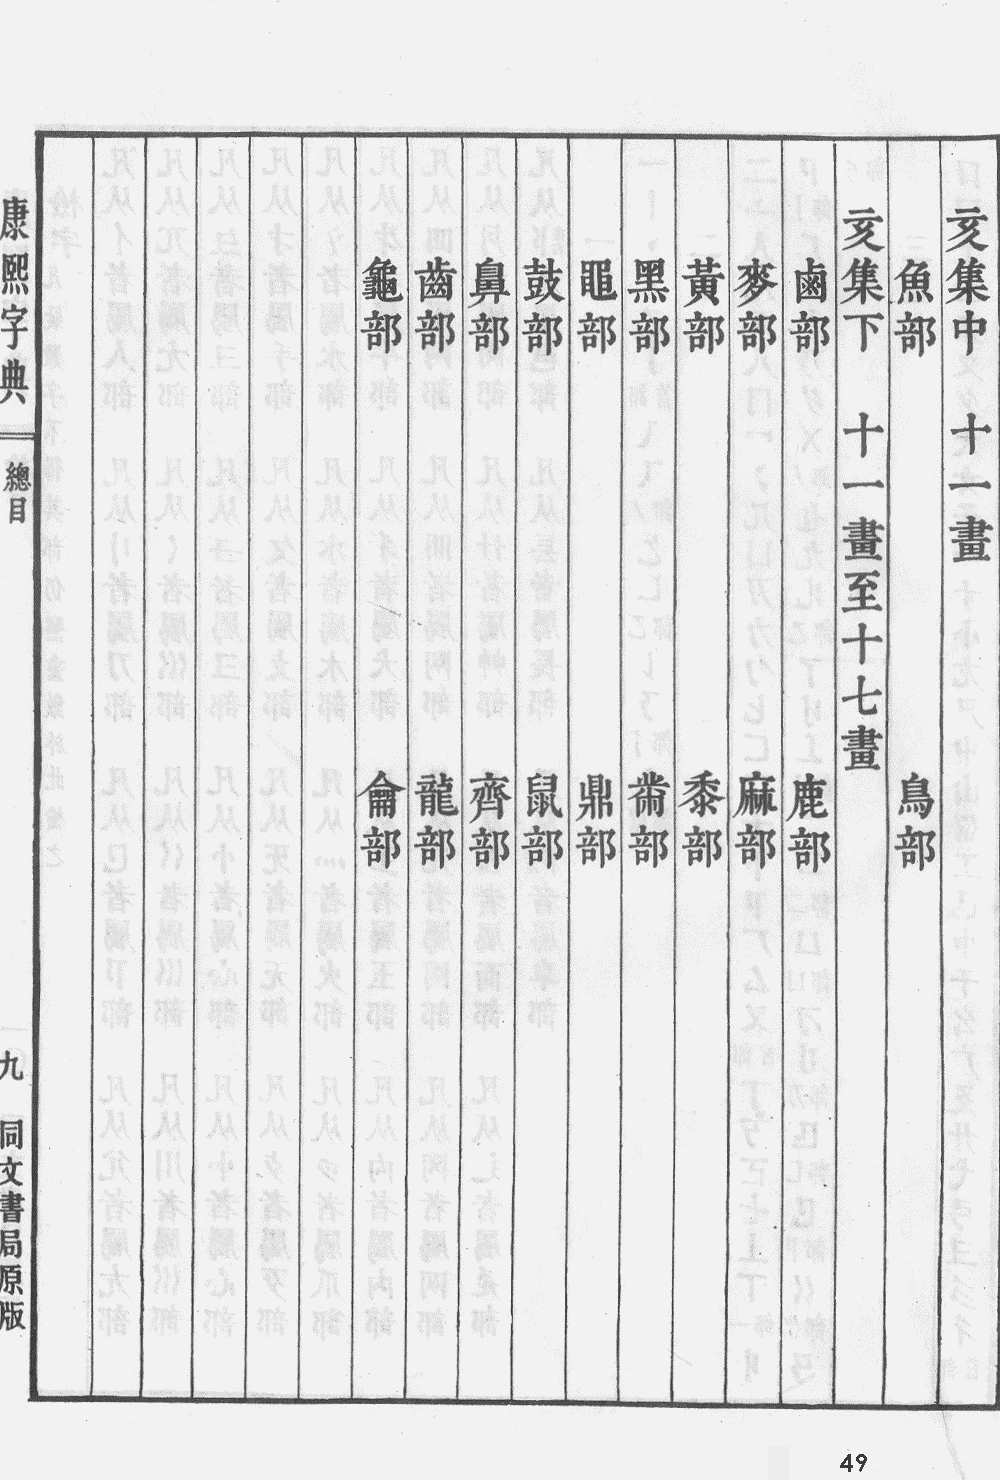 亥集中　十一畫
魚部　鳥部
亥集下　十一畫至十七畫
鹵部　鹿部
麥部　麻部
黃部　黍部
黑部　黹部
黽部　鼎部
鼓部　鼠部
鼻部　齊部
齒部　龍部
龜部　龠部
康熙字典　總目　九　同文書局原版
49